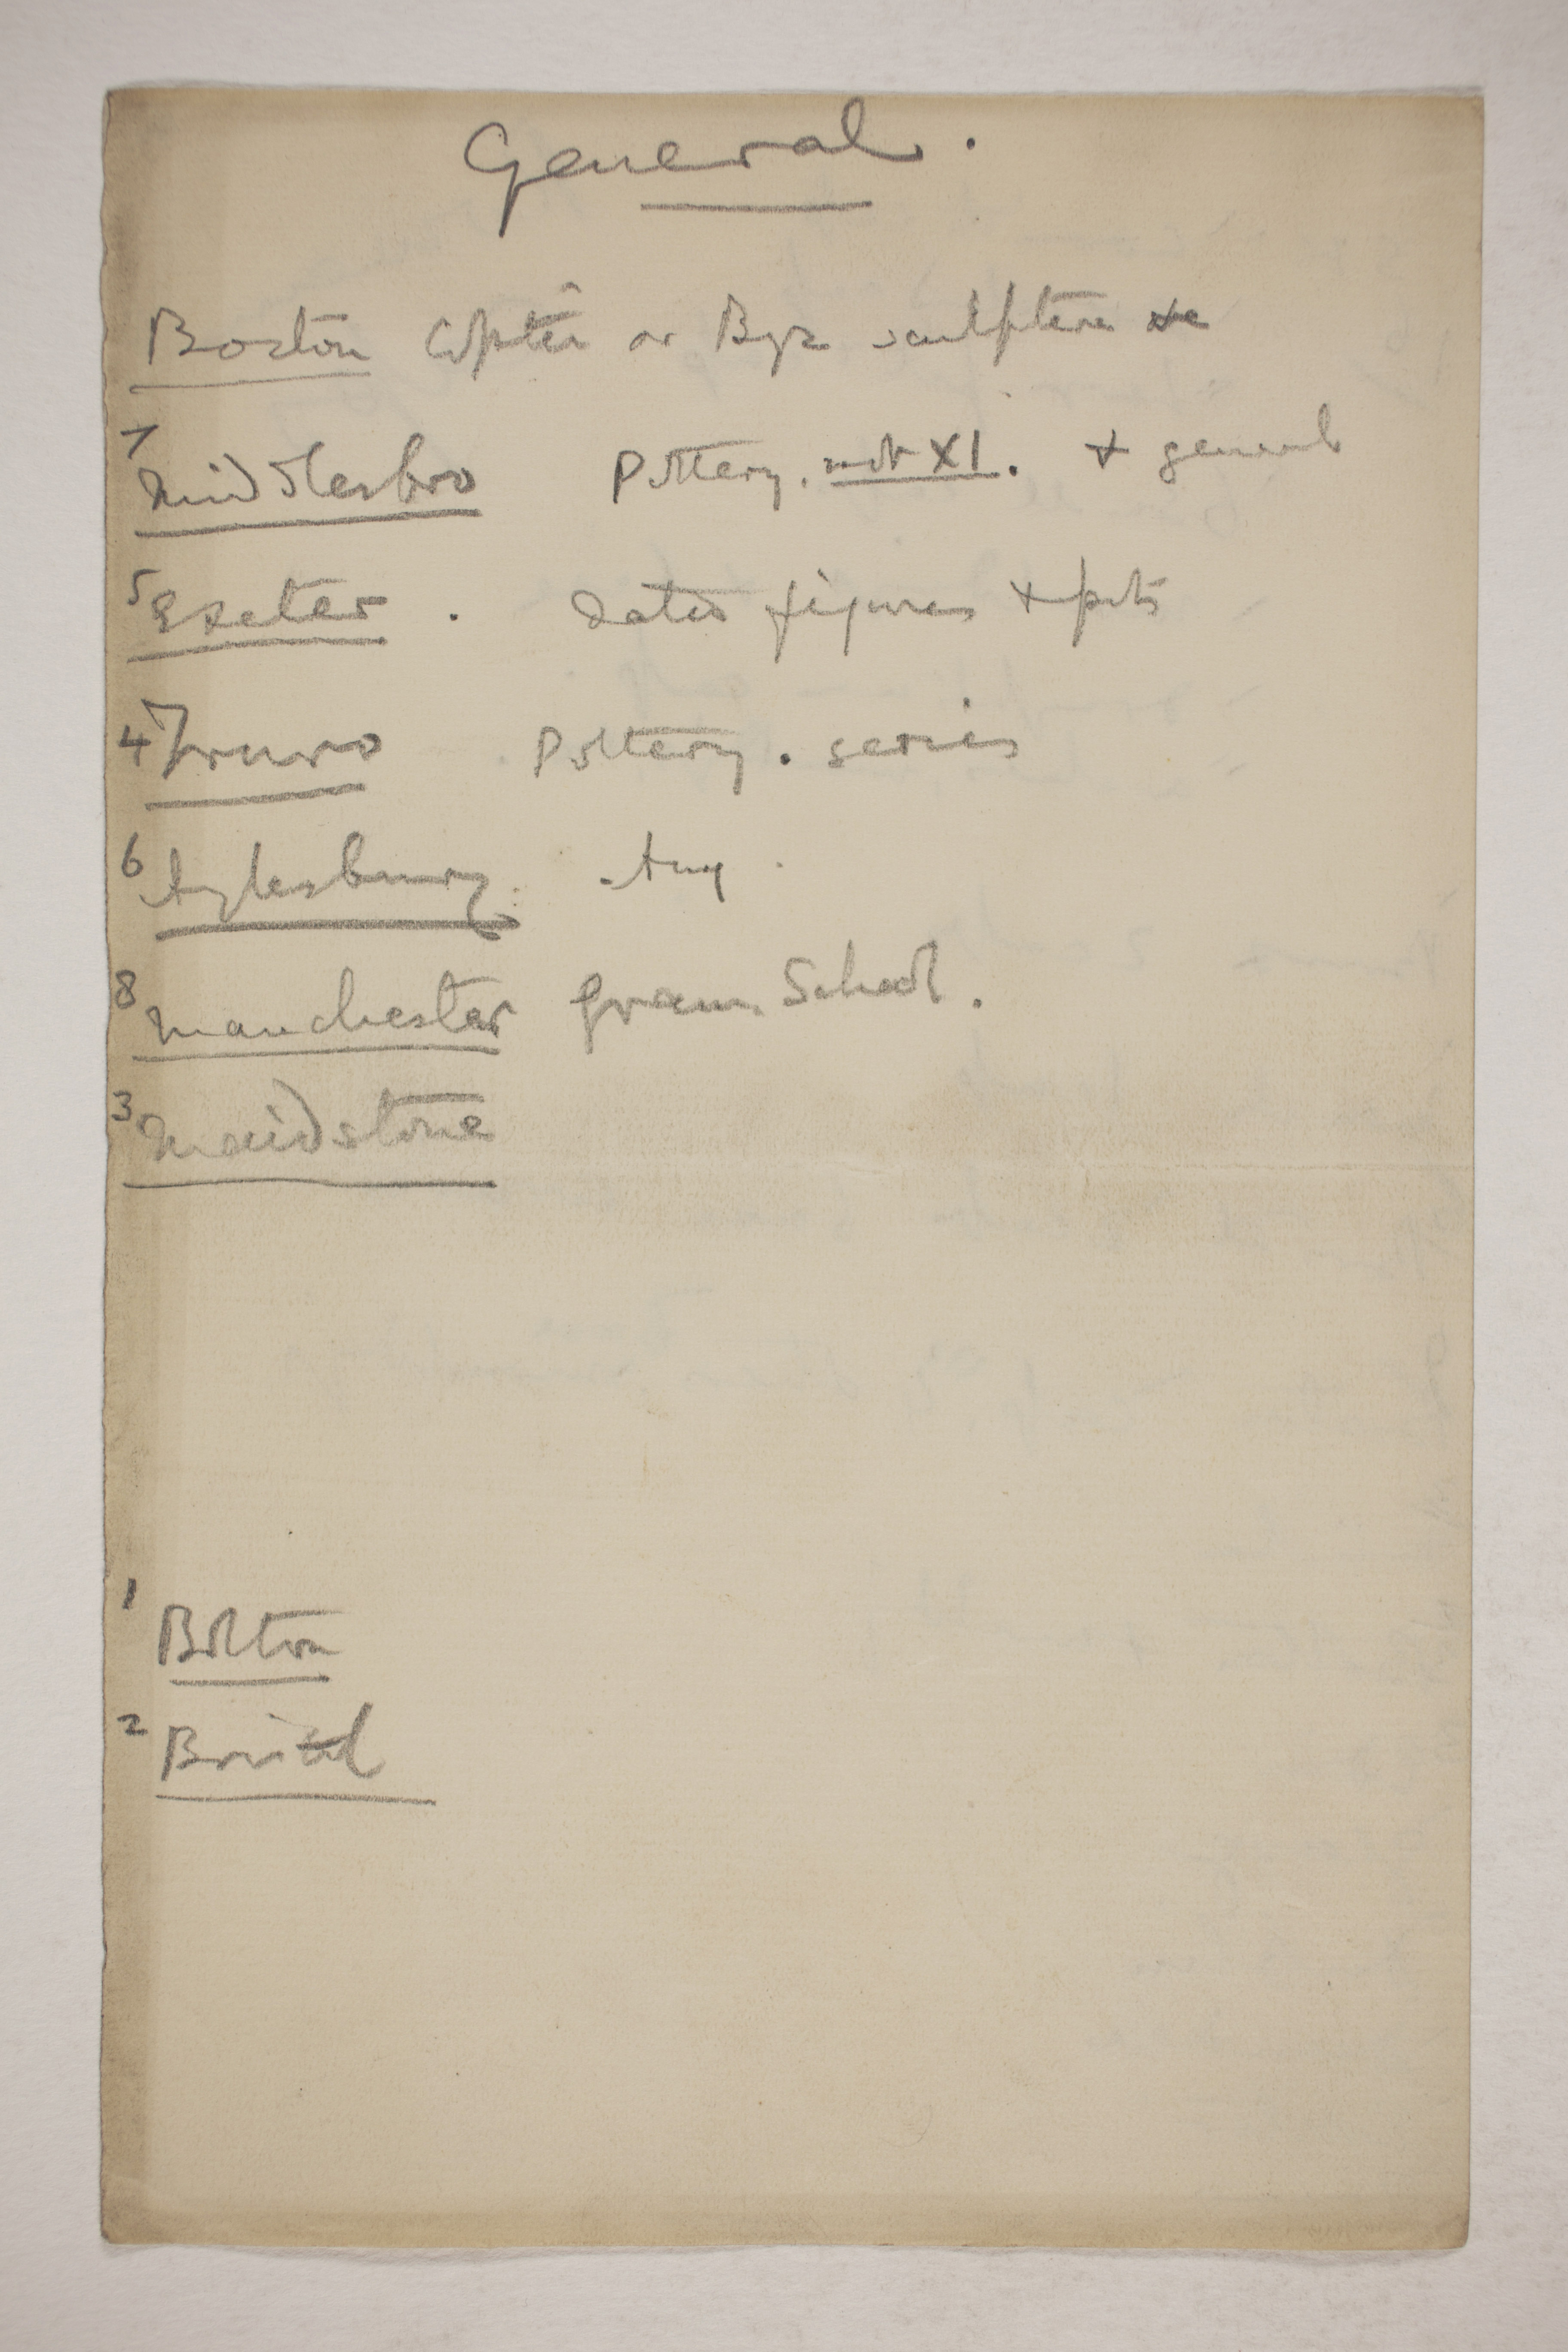 General.
Boston Coptic or Byz sculpture &c
7 Middlesbro Pottery. not XI. + general
5 Exeter. dated figures + pots
4 Truro Pottery. series
6 Aylesbury. Any
8 Manchester Gram. School.
3 Maidstone
1 Bolton
2 Bristol